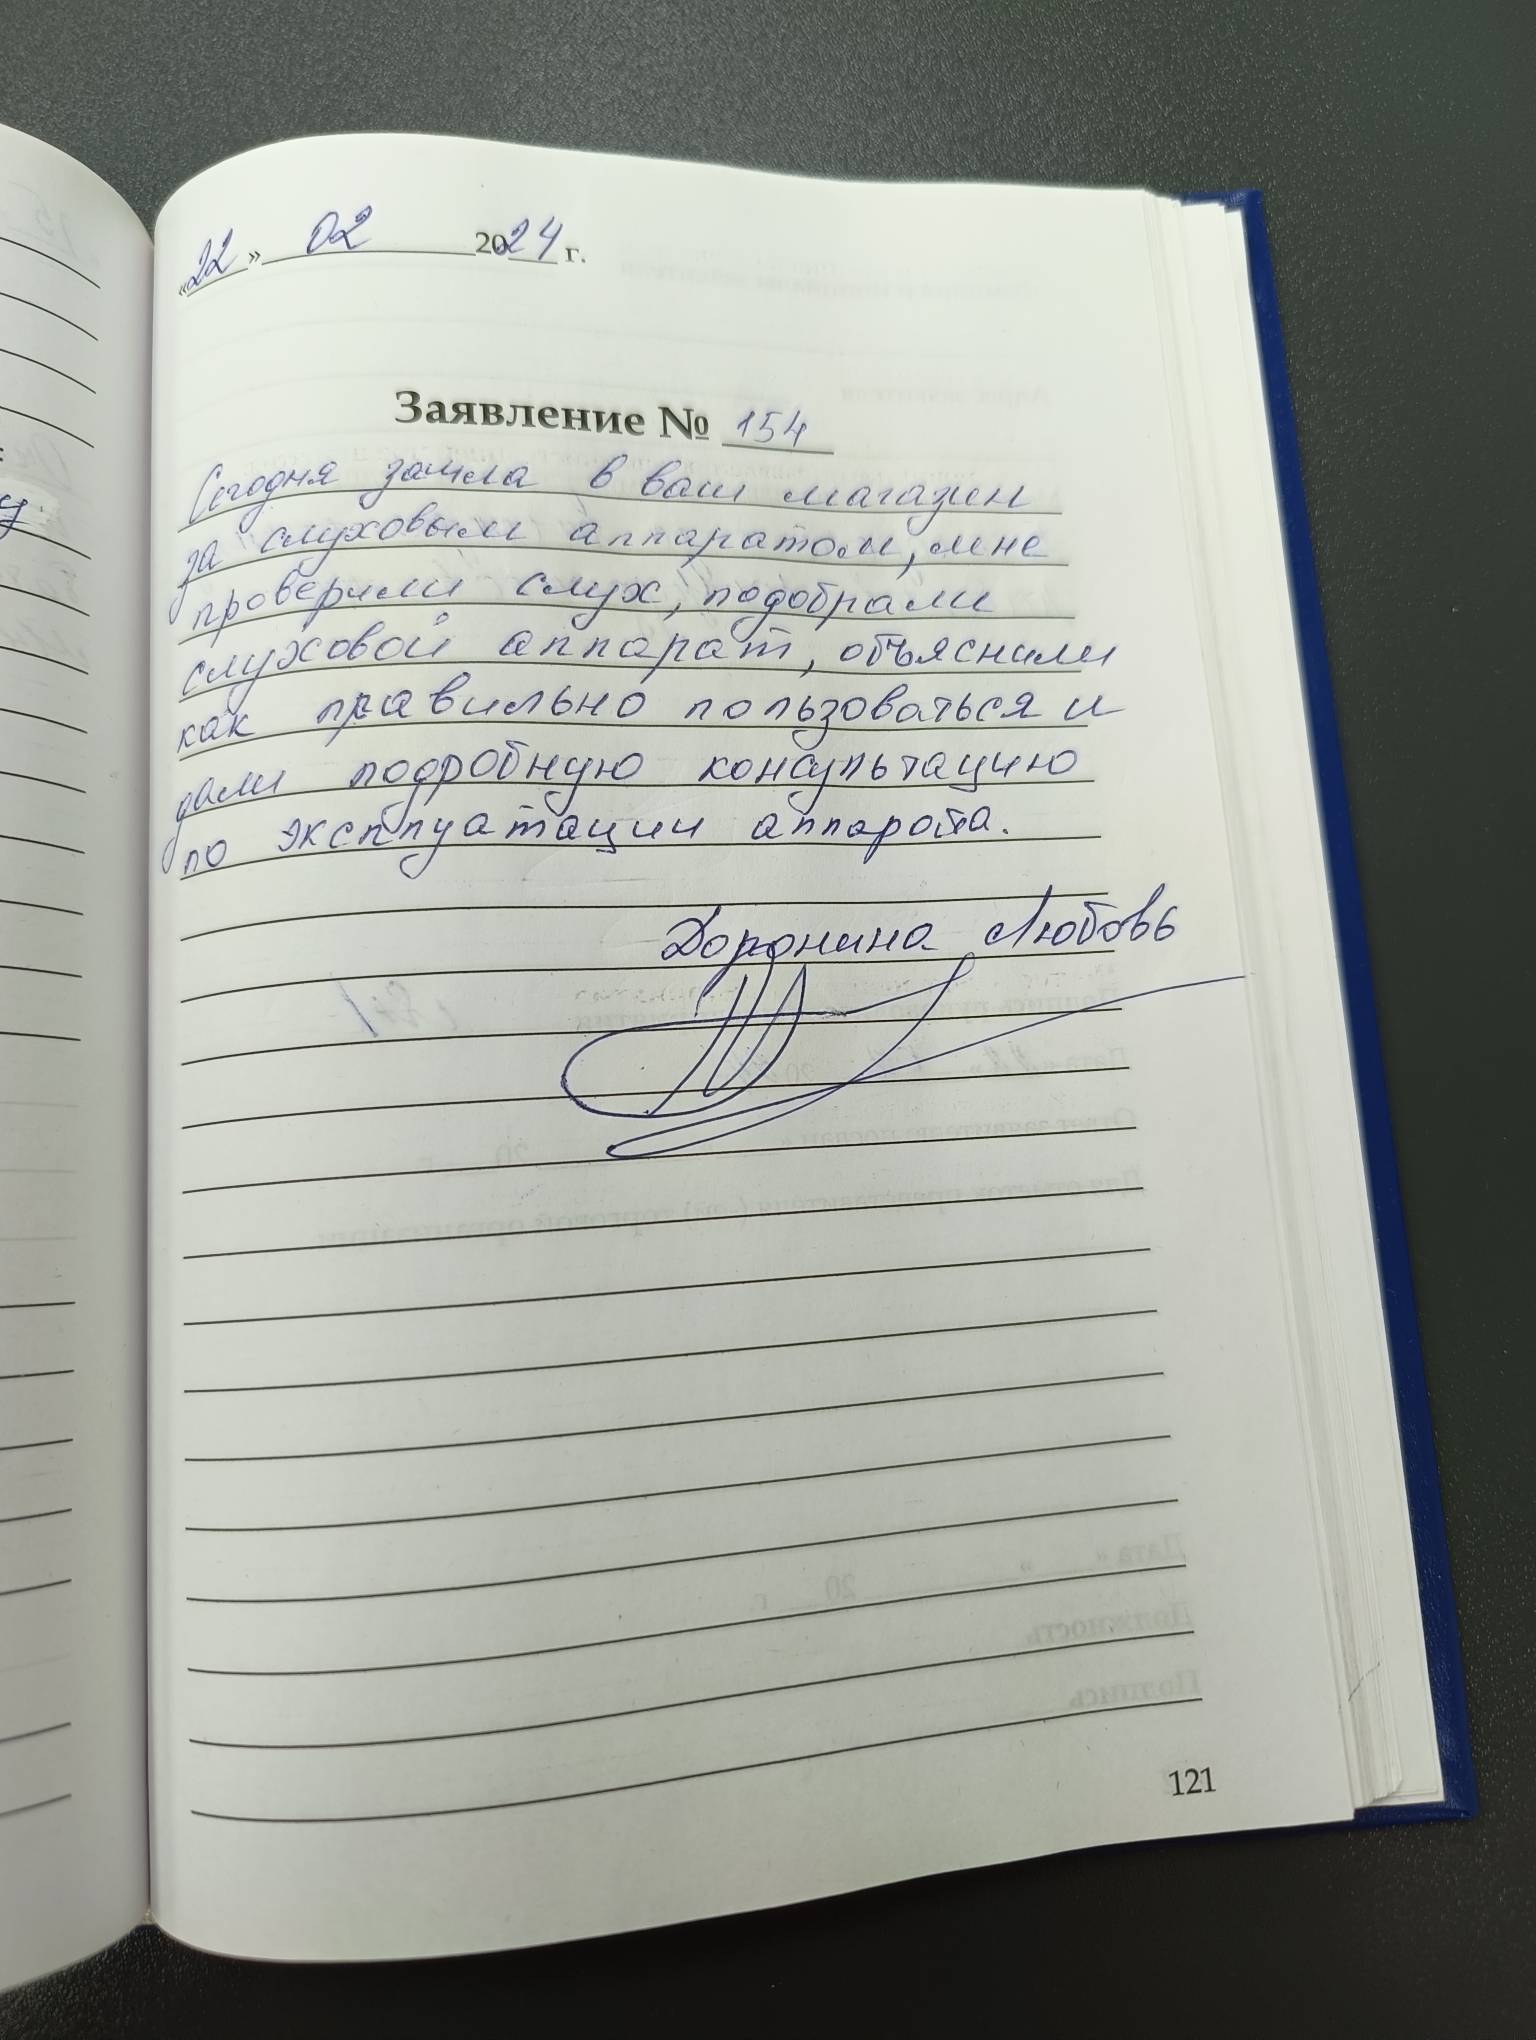 «22» 02 2024 г.
Заявление № 154
Сегодня зашла в ваш магазин
за слуховым аппаратом, мне
проверили слух, подобрали
слуховой аппарат, объяснили
как правильно пользоваться и
дали подробную консультацию
по эксплуатации аппарата.
Доронина Любовь
121